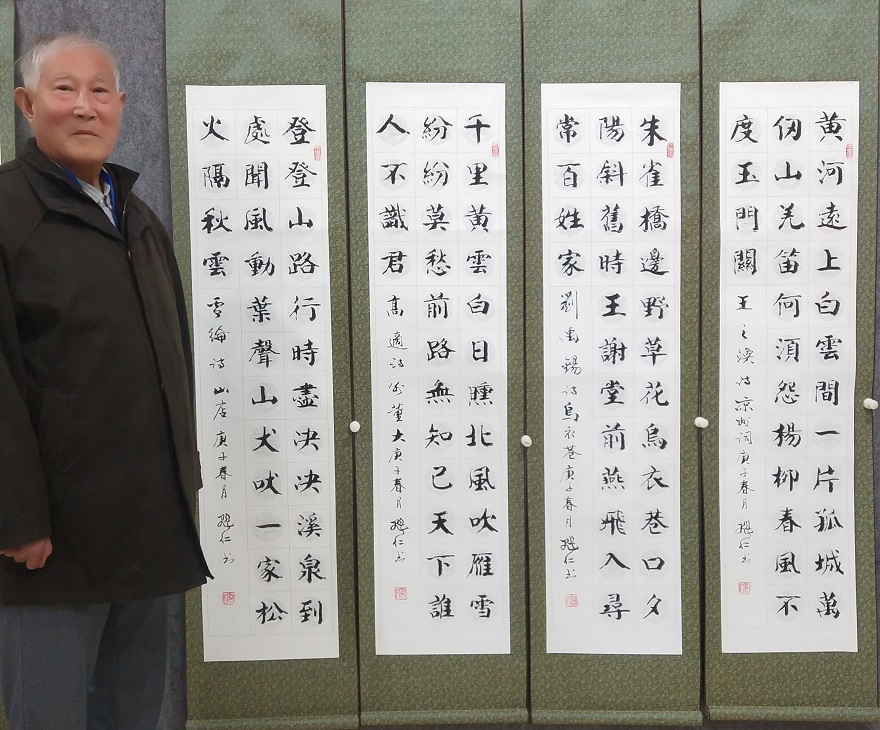 黄河遠上白雲間一片孤城萬
仞山羌笛何湏怨楊柳春風不
度玉門關 王之渙诗凉州词庚子春月 仁书
朱雀橋邊野草花烏衣巷口夕
陽斜舊時王謝堂前燕飛入尋
常百姓家 劉禹锡诗烏衣巷庚子春月 仁书
千里黄雲白日曛北風吹雁雪
紛紛莫愁前路無知己天下誰
人不識君 高適诗别董大庚子春月 仁书
登登山路行時盡决决溪泉到
處聞風動葉聲山犬吠一家松
火隔秋雲 綸诗山店庚子春月 仁书